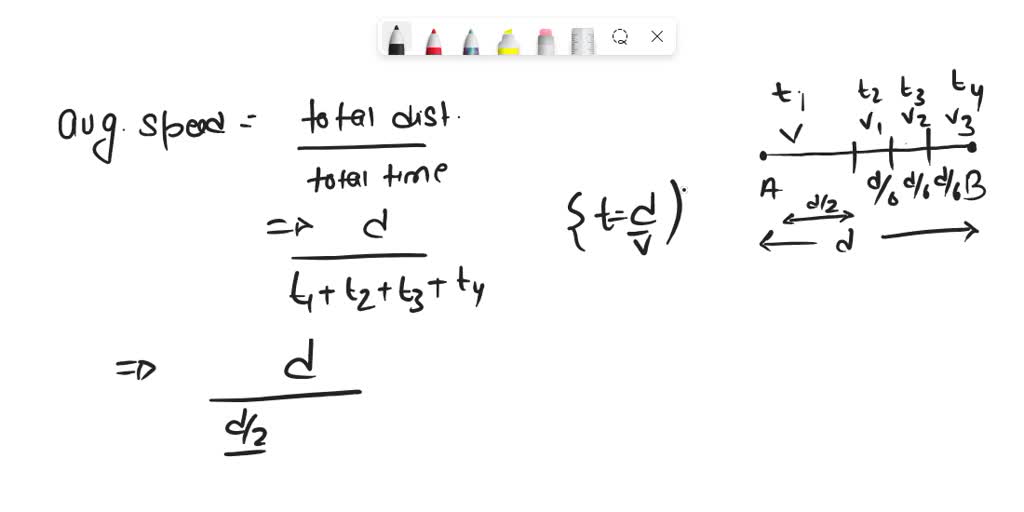 avg. speed = total dist.
total time
=> d
t1 + t2 + t3 + t4
{t = d/v)
=> d
d/2
t1 t2 t3 t4
v v1 v2 v3
A d/6 d/6 d/6 B
d/2
d